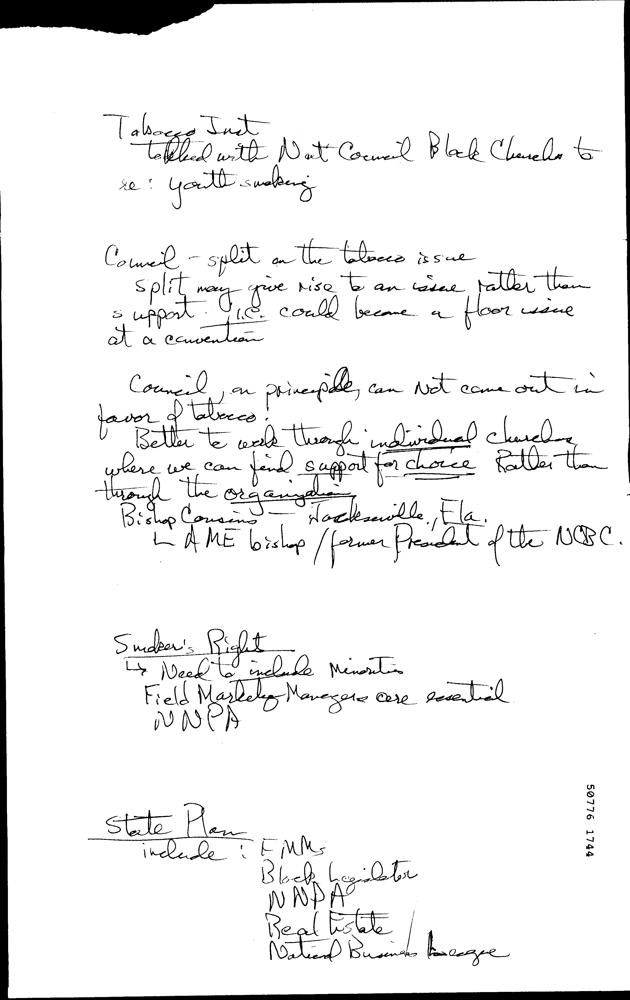 Tobacco Inst
talked with Nat Council Black Churches to
re: youth smoking
Council - split on the tobacco issue
split may give rise to an issue rather than
support. i.e. could become a floor issue
at a convention
Council, on principle, can not come out in
favor of tobacco.
Better to work through individual churches
where we can find support for choice Rather than
through the organization
Bishop Cousins - Jacksonville, Fla.
↳ AME bishop / former President of the NCBC.
Smoker's Right
↳ Need to include Minorities
Field Marketing Managers are essential
NNPA
State Plan
include : FMMs
Black Legislator
NNPA
Real Estate
National Business League
50776 1744